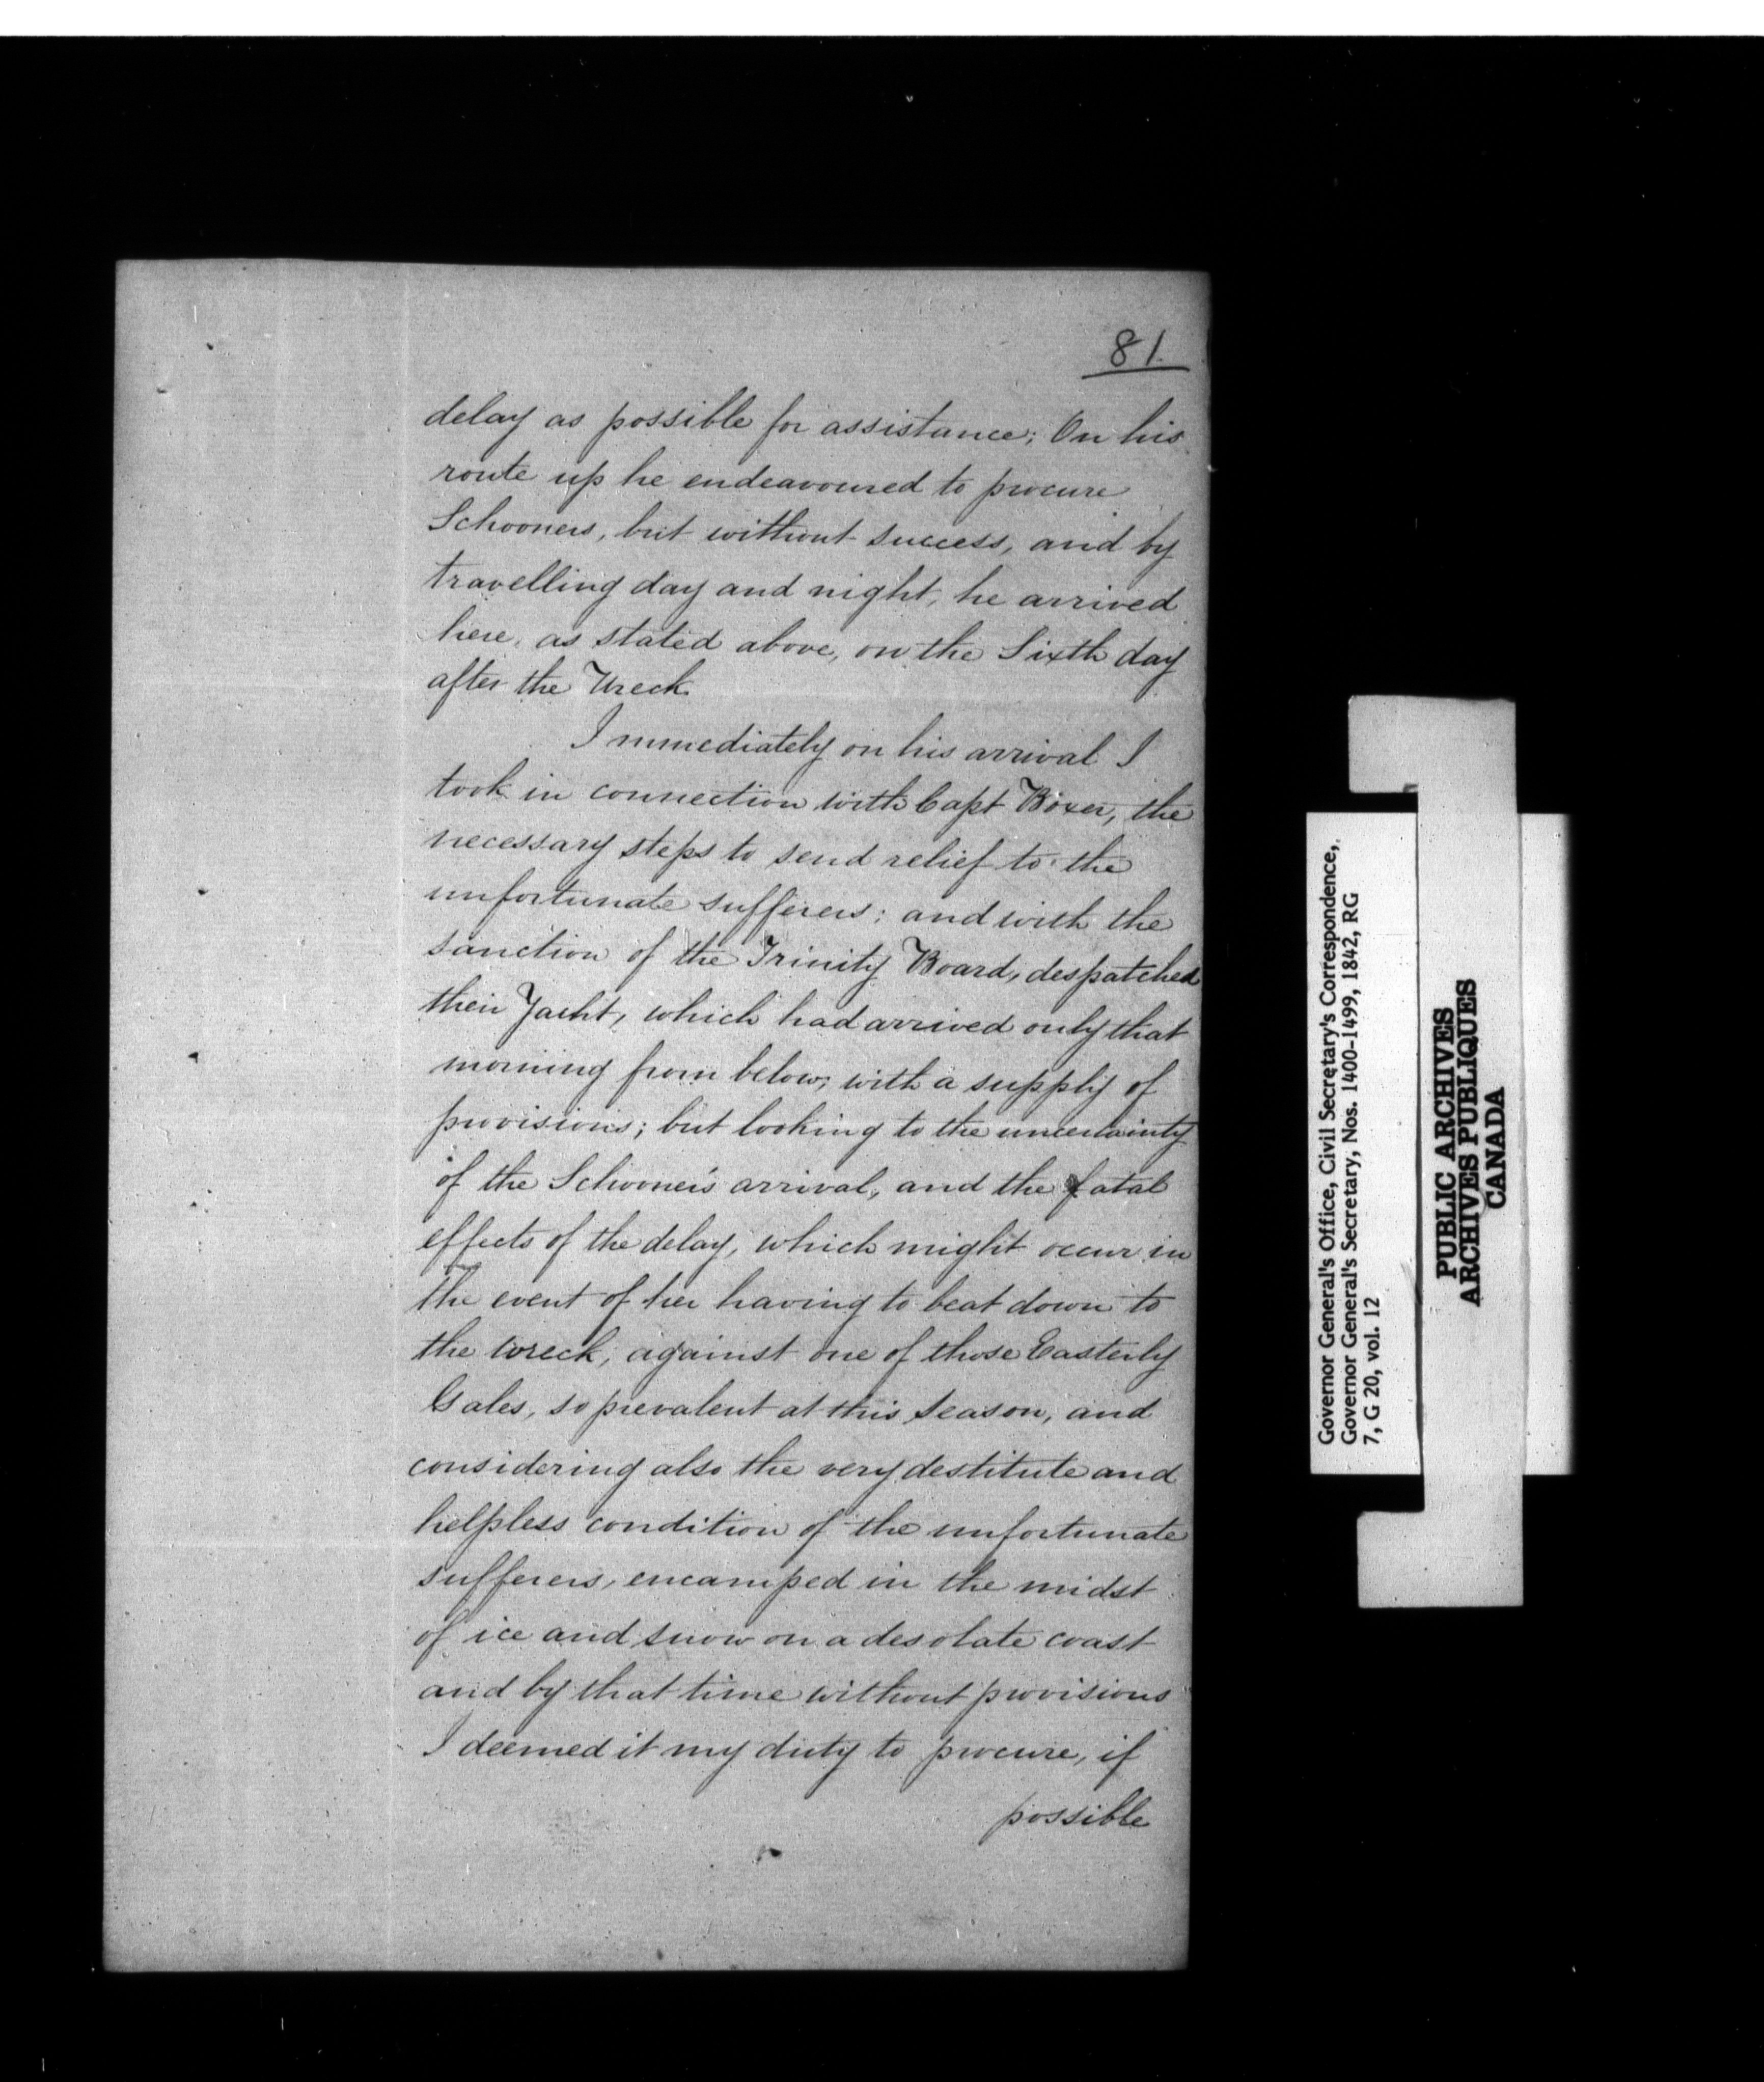 81
delay as possible for assistance; On his
route up he endeavoured to procure
Schooners, but without success, and by
travelling day and night, he arrived
here, as stated above, on the Sixth day
after the Wreck.
Immediately on his arrival I
took in connection with Capt Boxer, the
necessary steps to send relief to the
unfortunate sufferers; and with the
sanction of the Trinity Board, despatched
their Yacht, which had arrived only that
morning from below, with a supply of
provisions; but looking to the uncertainty
of the Schooner's arrival, and the fatal
effects of the delay, which might occur in
the event of her having to beat down to
the wreck, against one of those Easterly
Gales, so prevalent at this season, and
considering also the very destitute and
helpless condition of the unfortunate
sufferers, encamped in the midst
of ice and snow on a desolate coast
and by that time without provisions
I deemed it my duty to procure, if
possible
Governor General's Office, Civil Secretary's Correspondence,
Governor General's Secretary, Nos. 1400-1499, 1842, RG
7, G 20, vol. 12
PUBLIC ARCHIVES
ARCHIVES PUBLIQUES
CANADA